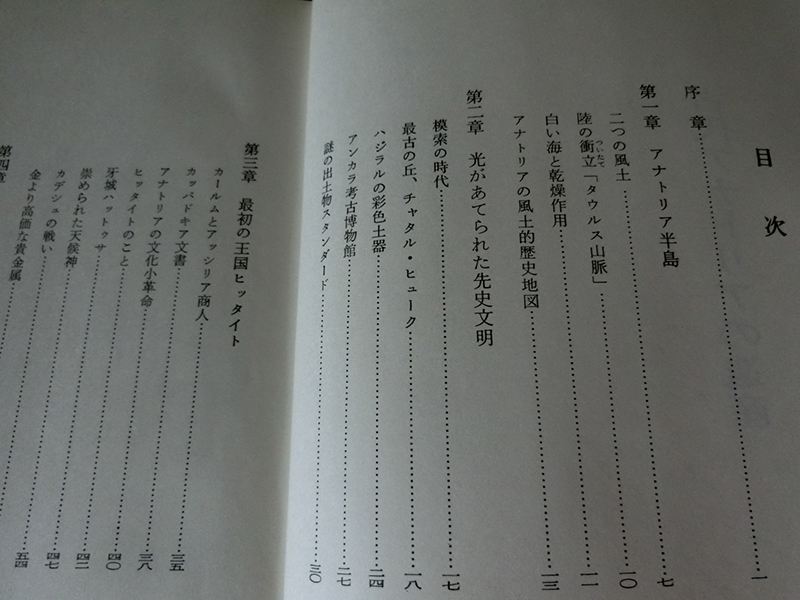 目次
序章……一
第一章 アナトリア半島
二つの風土……七
陸の衝立「タウルス山脈」……一〇
ついたて
白い海と乾燥作用……一一
アナトリアの風土的歴史地図……一三
第二章 光があてられた先史文明
模索の時代……一七
最古の丘、チャタル・ヒューク……一八
ハジラルの彩色土器……二四
アンカラ考古博物館……二七
謎の出土物スタンダード……三〇
第三章 最初の王国ヒッタイト
カールムとアッシリア商人……三五
カッパドキア文書……三八
アナトリアの文化小革命……四〇
ヒッタイトのこと……四二
牙城ハットゥサ……四七
崇められた天候神……五四
カデシュの戦い……
金より高価な貴金属……
第四章